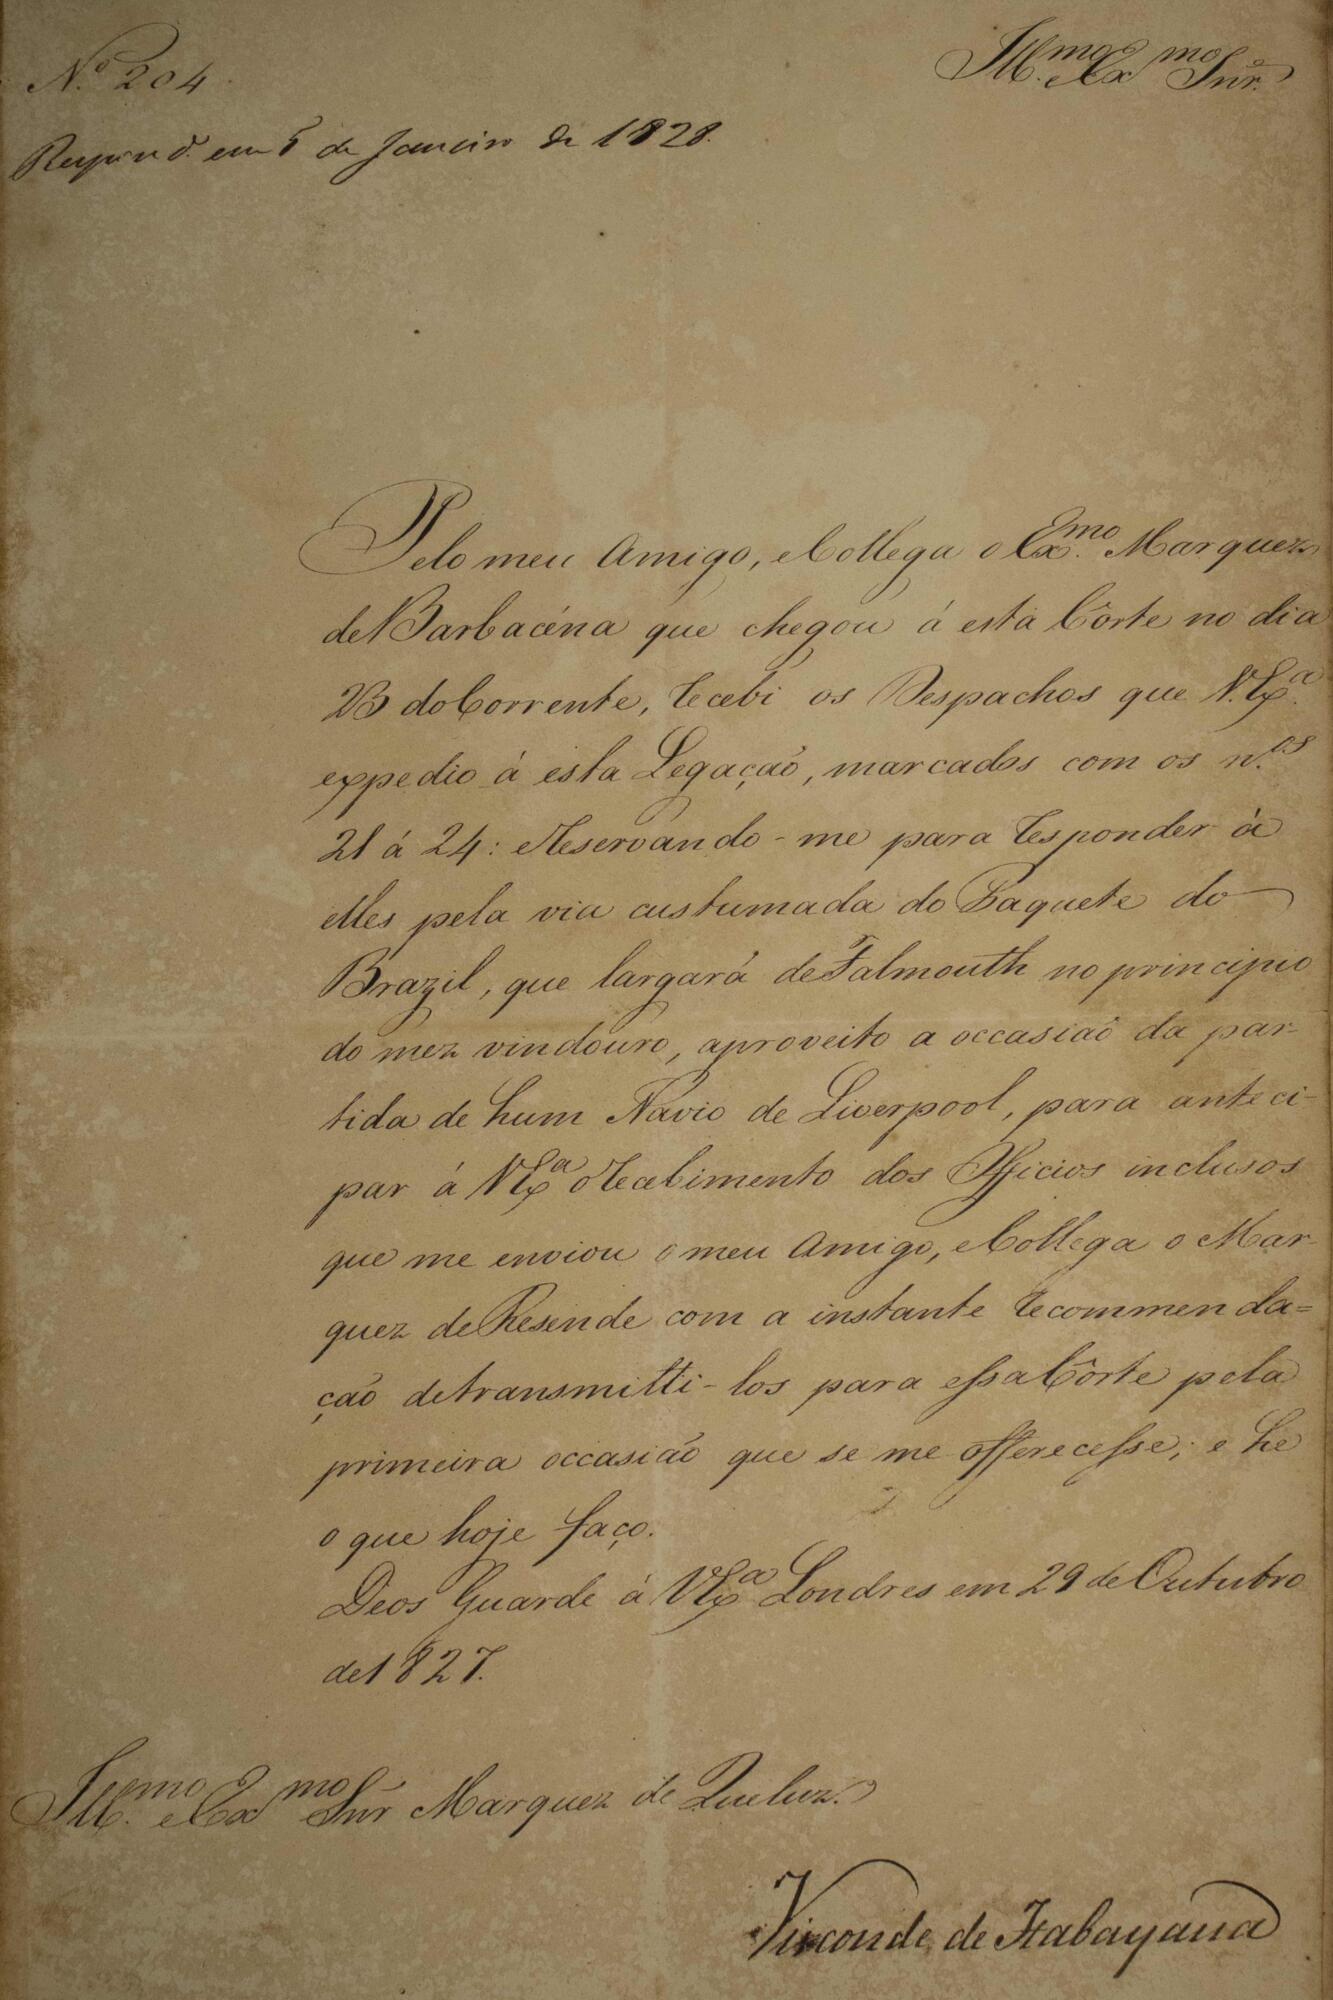 N.º 204
Ill.mo e Ex.mo Snr.
Respond.º em 5 de Janeiro de 1828.
Pelo meu Amigo, e Collega o Ex.mo Marquez
de Barbacéna que chegou á esta Côrte no dia
23 do Corrente, recebi os Despachos que V. Ex.ª
expedio à esta Legação, marcados com os n.os
21 á 24: e Reservando-me para responder à
elles pela via custumada do Paquete do
Brazil, que largará de Falmouth no principio
do mez vindouro, aproveito a occasião da par-
tida de hum Navio de Liverpool, para anteci-
par á V Ex.ª o recebimento dos Officios inclusos
que me enviou o meu Amigo, e Collega o Mar-
quez de Resende com a instante recommenda=
ção de transmitti-los para essa Côrte pela
primeira occasião que se me offerecesse; e he
o que hoje faço.
Deos Guarde á V Ex.ª Londres em 29 de Outubro
de 1827.
Ill.mo e Ex.mo Snr Marquez de Queluz.
Visconde de Itabayana